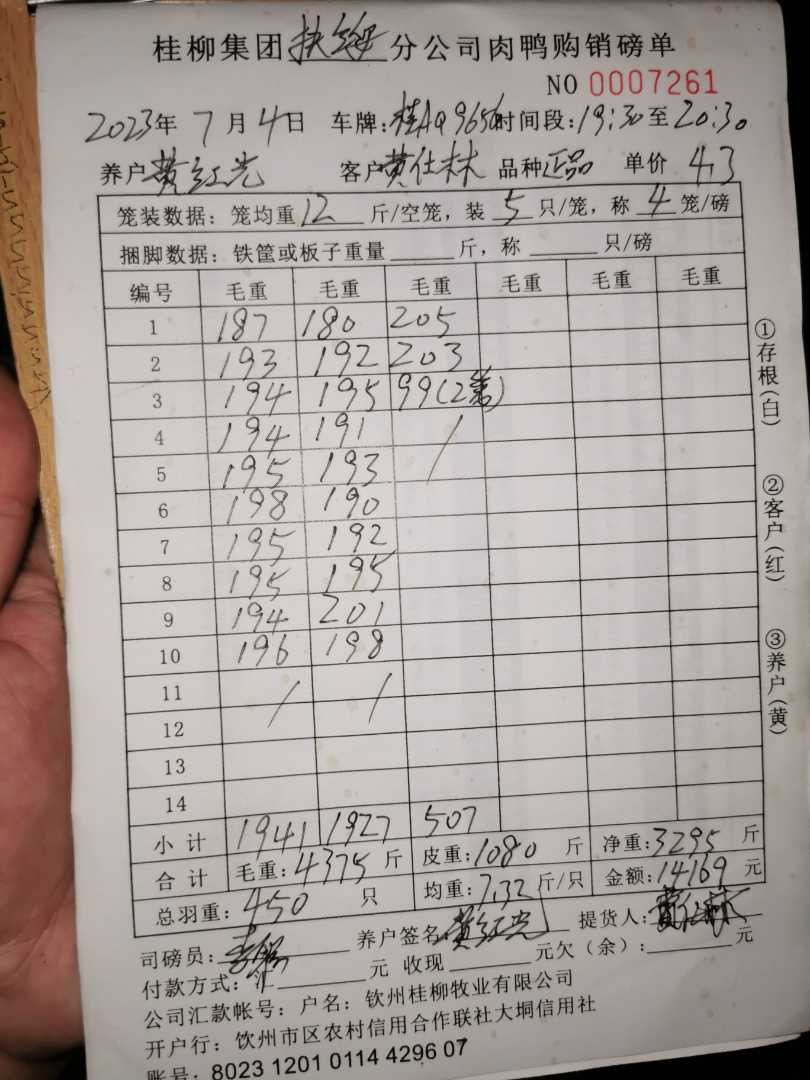 桂柳集团扶绥分公司肉鸭购销磅单
NO 0007261
2023年 7月4日 车牌:桂AQ9656时间段:19:30至20:30
养户黄红光 客户黄仕林 品种正品 单价 4.3
笼装数据：笼均重12斤/空笼，装5只/笼，称4笼/磅
捆脚数据：铁筐或板子重量____斤，称____只/磅
编号 毛重 毛重 毛重 毛重 毛重 毛重
1 187 180 205
2 193 192 203
3 194 195 99(2笼)
4 194 191 /
5 195 193
6 198 190
7 195 192
8 195 195
9 194 201
10 196 198
11 / /
12
13
14
小计 1941 1927 507
合计 毛重:4375斤 皮重:1080斤 净重:3295斤
总羽重:450只 均重:7.32斤/只 金额:14169元
司磅员: 养户签名:黄红光 提货人:黄仕林
付款方式: ____元 收现____元欠（余）:____元
公司汇款帐号：户名：钦州桂柳牧业有限公司
开户行：钦州市区农村信用合作联社大垌信用社
账号：8023 1201 0114 4296 07
①存根(白)
②客户(红)
③养户(黄)